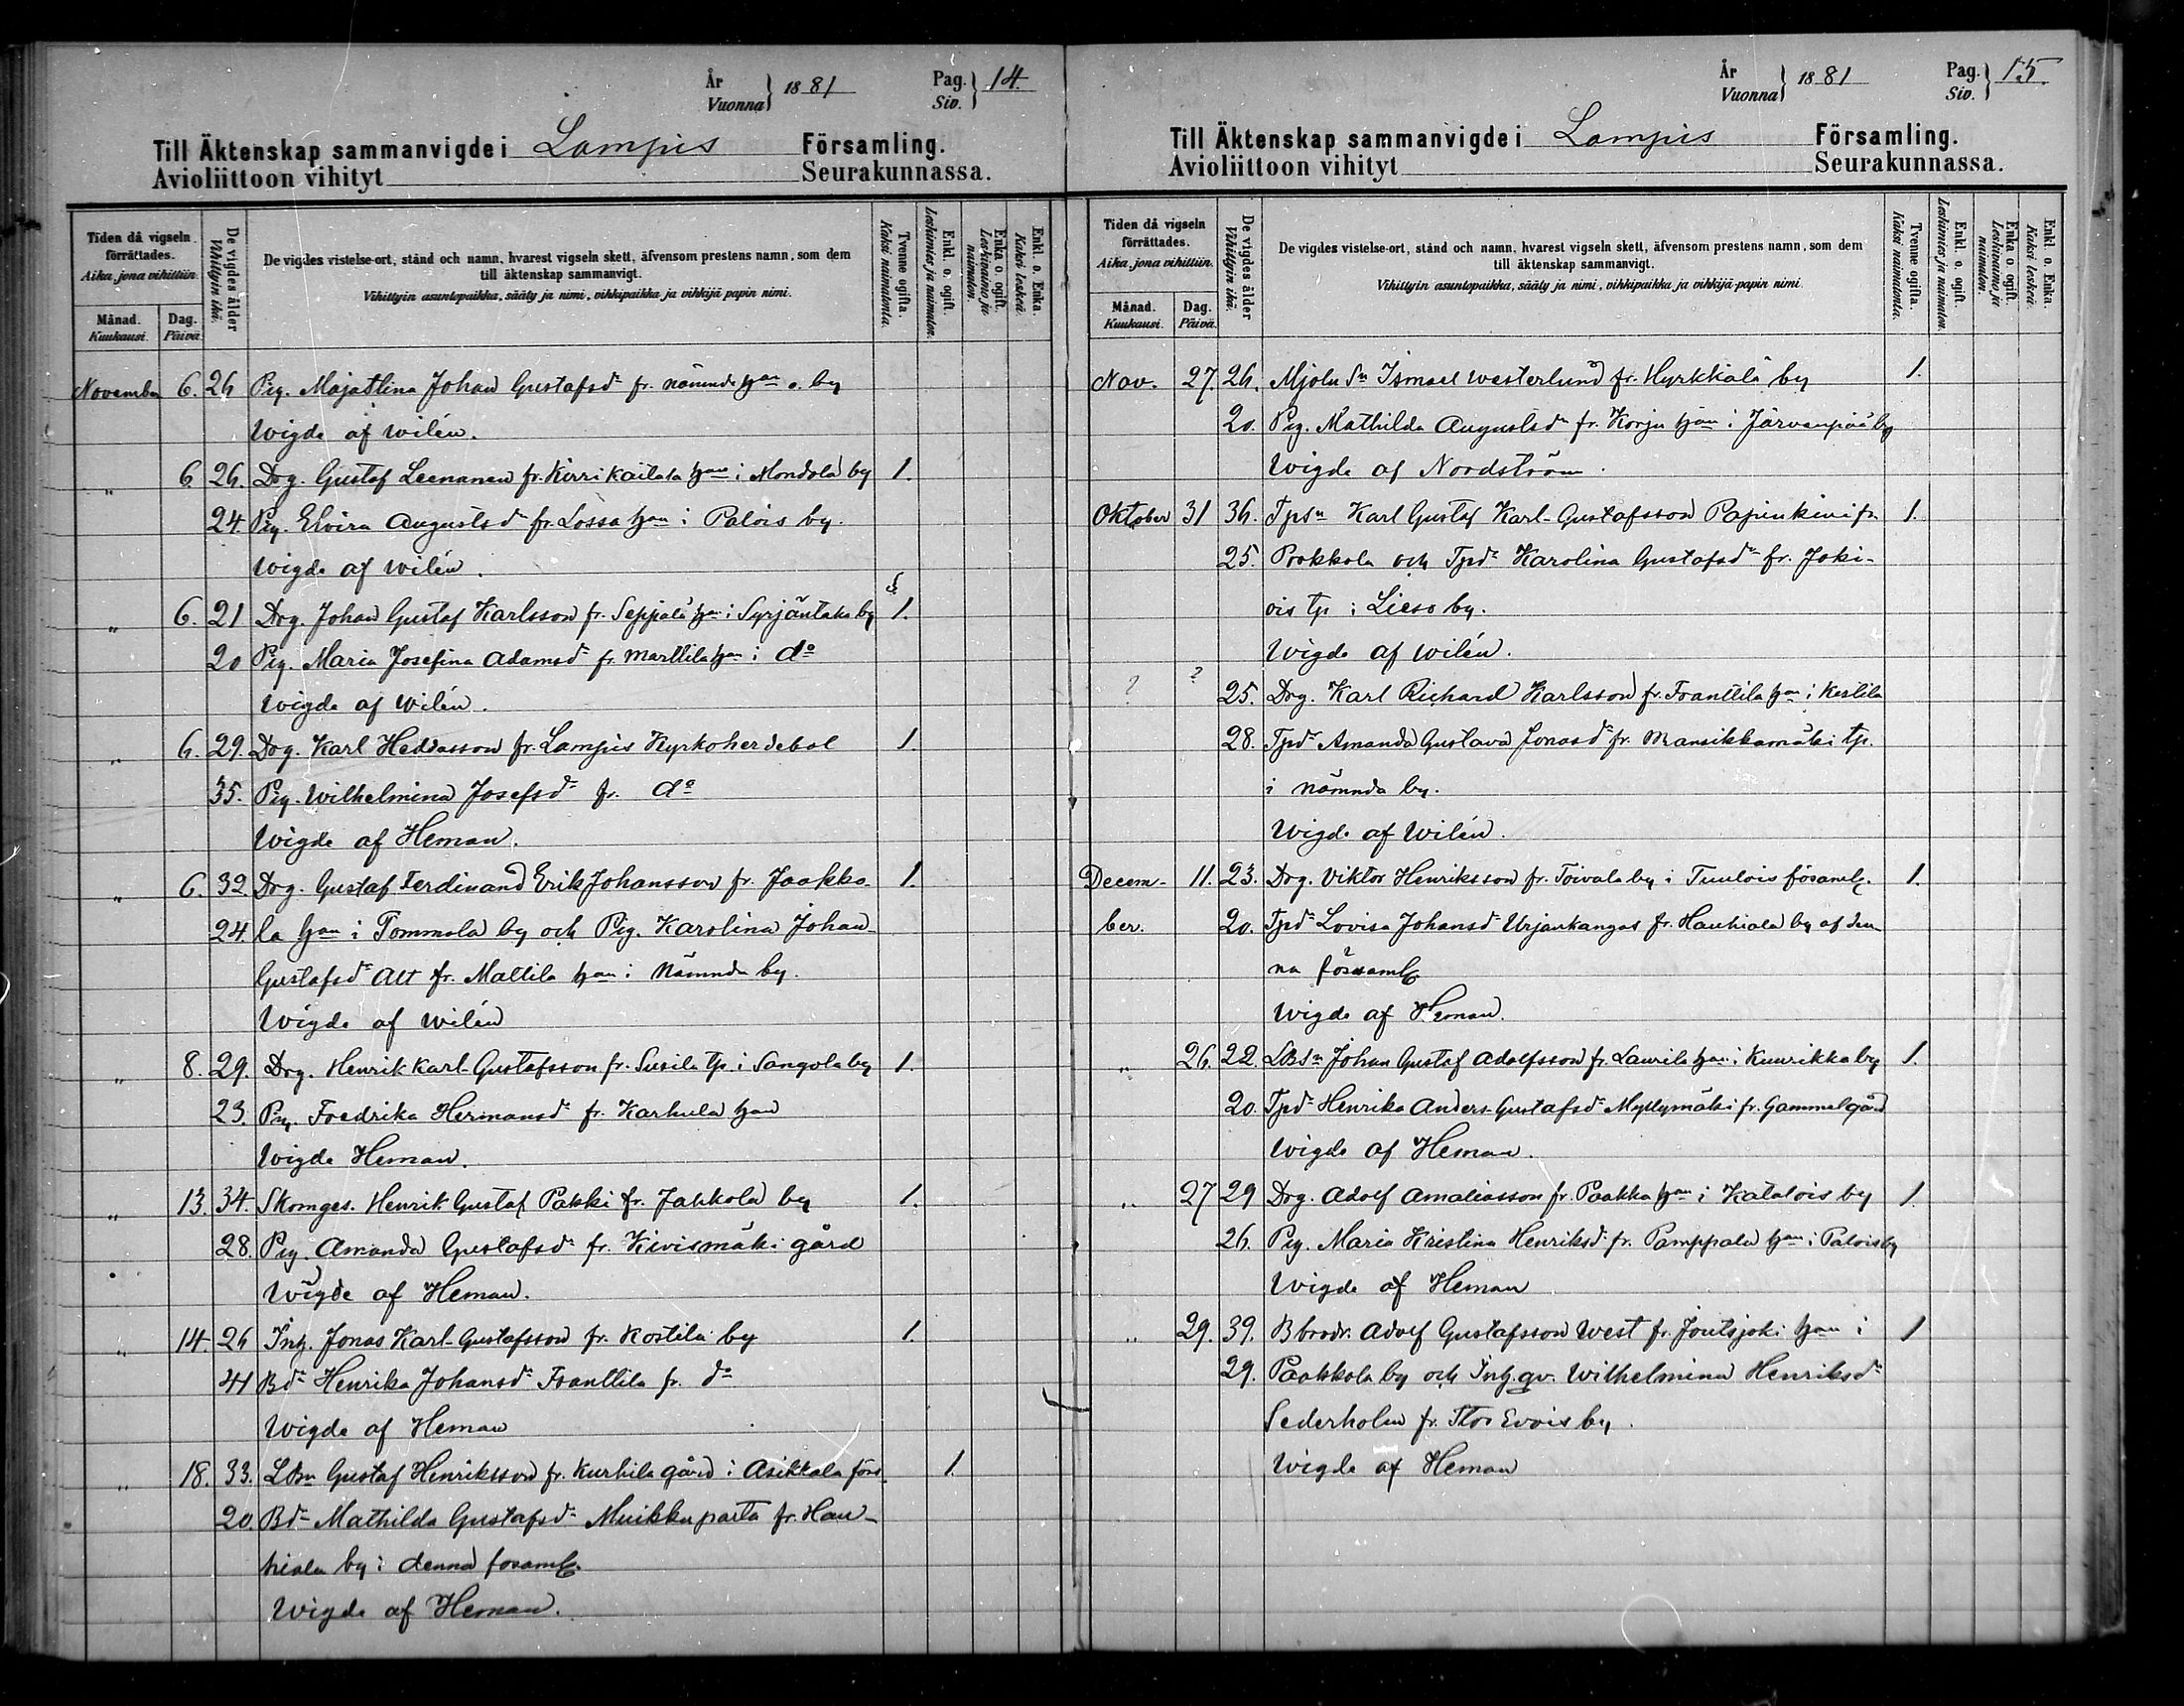 År
Vuonna } 1881
Pag.
Siv. } 14.
Till Äktenskap sammanvigde i Lampis Församling.
Avioliittoon vihityt Seurakunnassa.
Tiden då vigseln förrättades.
Aika, jona vihittiin.
Månad.
Kuukausi.
Dag.
Päivä.
De vigdes ålder
Vihittyin ikä.
De vigdes vistelse-ort, stånd och namn, hvarest vigseln skett, äfvensom prestens namn, som dem
till äktenskap sammanvigt.
Vihittyin asuntopaikka, sääty ja nimi, vihkipaikka ja vihkijä papin nimi.
Tvenne ogifta.
Kaksi naimatonta.
Enkl. o. ogift.
Leskimies ja naimaton.
Enka o. ogift.
Leskivaimo ja naimaton.
Enkl. o. Enka.
Kaksi leskeä.
November 6. 26 Pig. Majastina Johan Gustafsdr fr. nämnde hn o. by
Wigde af Wilén.
" 6 26. Drg. Gustaf Leenanen fr. Kirrikailala hn i Mondola by 1.
24. Pig. Elvira Augustsdr fr. Lossa hn i Palois by.
Wigde af Wilén.
" 6. 21 Drg. Johan Gustaf Karlsson fr. Seppälä hn i Syrjäntaka by 1.
20 Pig. Maria Josefina Adamsdr fr. Marttila hn i do
Wigde af Wilén.
" 6. 29. Drg. Karl Heddasson fr. Lampis Kyrkoherdebol 1.
35. Pig. Wilhelmina Josefsdr fr. do
Wigde af Heman.
" 6. 32 Drg. Gustaf Ferdinand Erik Johansson fr. Jaakko- 1.
24. la hn i Tommola by och Pig. Karolina Johan
Gustafsdr Alt fr. Mattila hn i Nämnda by.
Wigde af Wilén
" 8. 29. Drg. Henrik Karl-Gustafsson fr. Susila tp. i Sangola by 1.
23. Pig. Fredrika Hermansdr fr. Karhula hn
Wigde Heman.
" 13. 34. Skomges. Henrik Gustaf Pakki fr. Jahkola by 1.
28. Pig. Amanda Gustafsdr fr. Kivismäki gård
Wigde af Heman.
" 14. 26 Inh. Jonas Karl-Gustafsson fr. Kostila by 1.
41 Bdr Henrika Johansdr Franttila fr. do
Wigde af Heman
" 18. 33. LBn Gustaf Henriksson fr. Kurhila gård i Asikkala förs. 1.
20. Bdr Mathilda Gustafsdr Muikkuparta fr. Hau-
hiala by i denna forsaml.
Wigde af Heman.
År
Vuonna } 1881
Pag.
Siv. } 15.
Till Äktenskap sammanvigde i Lampis Församling.
Avioliittoon vihityt Seurakunnassa.
Tiden då vigseln förrättades.
Aika, jona vihittiin.
Månad.
Kuukausi.
Dag.
Päivä.
De vigdes ålder
Vihittyin ikä.
De vigdes vistelse-ort, stånd och namn, hvarest vigseln skett, äfvensom prestens namn, som dem
till äktenskap sammanvigt.
Vihittyin asuntopaikka, sääty ja nimi, vihkipaikka ja vihkijä-papin nimi.
Tvenne ogifta.
Kaksi naimatonta.
Enkl. o. ogift.
Leskimies ja naimaton.
Enka o ogift.
Leskivaimo ja naimaton.
Enkl. o. Enka.
Kaksi leskeä.
Nov. 27. 26. Mjoln Sn Ismael Westerlund fr. Hyrkkälä by 1.
20. Pig. Mathilda Augustsdr fr. Korju hn i Järvenpää by
Wigde af Nordström.
Oktober 31 36. Tpsn Karl Gustaf Karl-Gustafsson Papinkivi fr. 1.
25. Porkkola och Tpdr Karolina Gustafsdr fr. Joki-
ois tp i Lieso by.
Wigde af Wilén.
? ? 25. Drg. Karl Richard Karlsson fr. Franttila hn i Kostila
28. Tpdr Amanda Gustava Jonasdr fr. Mansikkamäki tp.
i nämnda by.
Wigde af Wilén.
Decem- 11. 23. Drg. Viktor Henriksson fr. Toivala by i Tuulois fösaml. 1.
ber. 20. Tpdr Lovisa Johansdr Urjankangas fr. Hauhiala by af den-
na församl
Wigde af Heman.
" 26. 22. LBsn Johan Gustaf Adolfsson fr. Laurila hn i Kuurikka by 1.
20. Tpdr Henrika Anders-Gustafsdr Myllymäki fr. Gammelgård
Wigde af Heman.
" 27 29 Drg. Adolf Amaliasson fr. Paakka hn i Katalois by 1.
26. Pig. Maria Kristina Henriksdr fr. Pamppala hn i Palois by
Wigde af Heman
" 29. 39. Bbrodr. Adolf Gustafsson West fr. Joutsjoki hn i 1
29. Paakkola by och Inh.qv. Wilhelmina Henriksdr
Sederholm fr. Stor Evois by.
Wigde af Heman